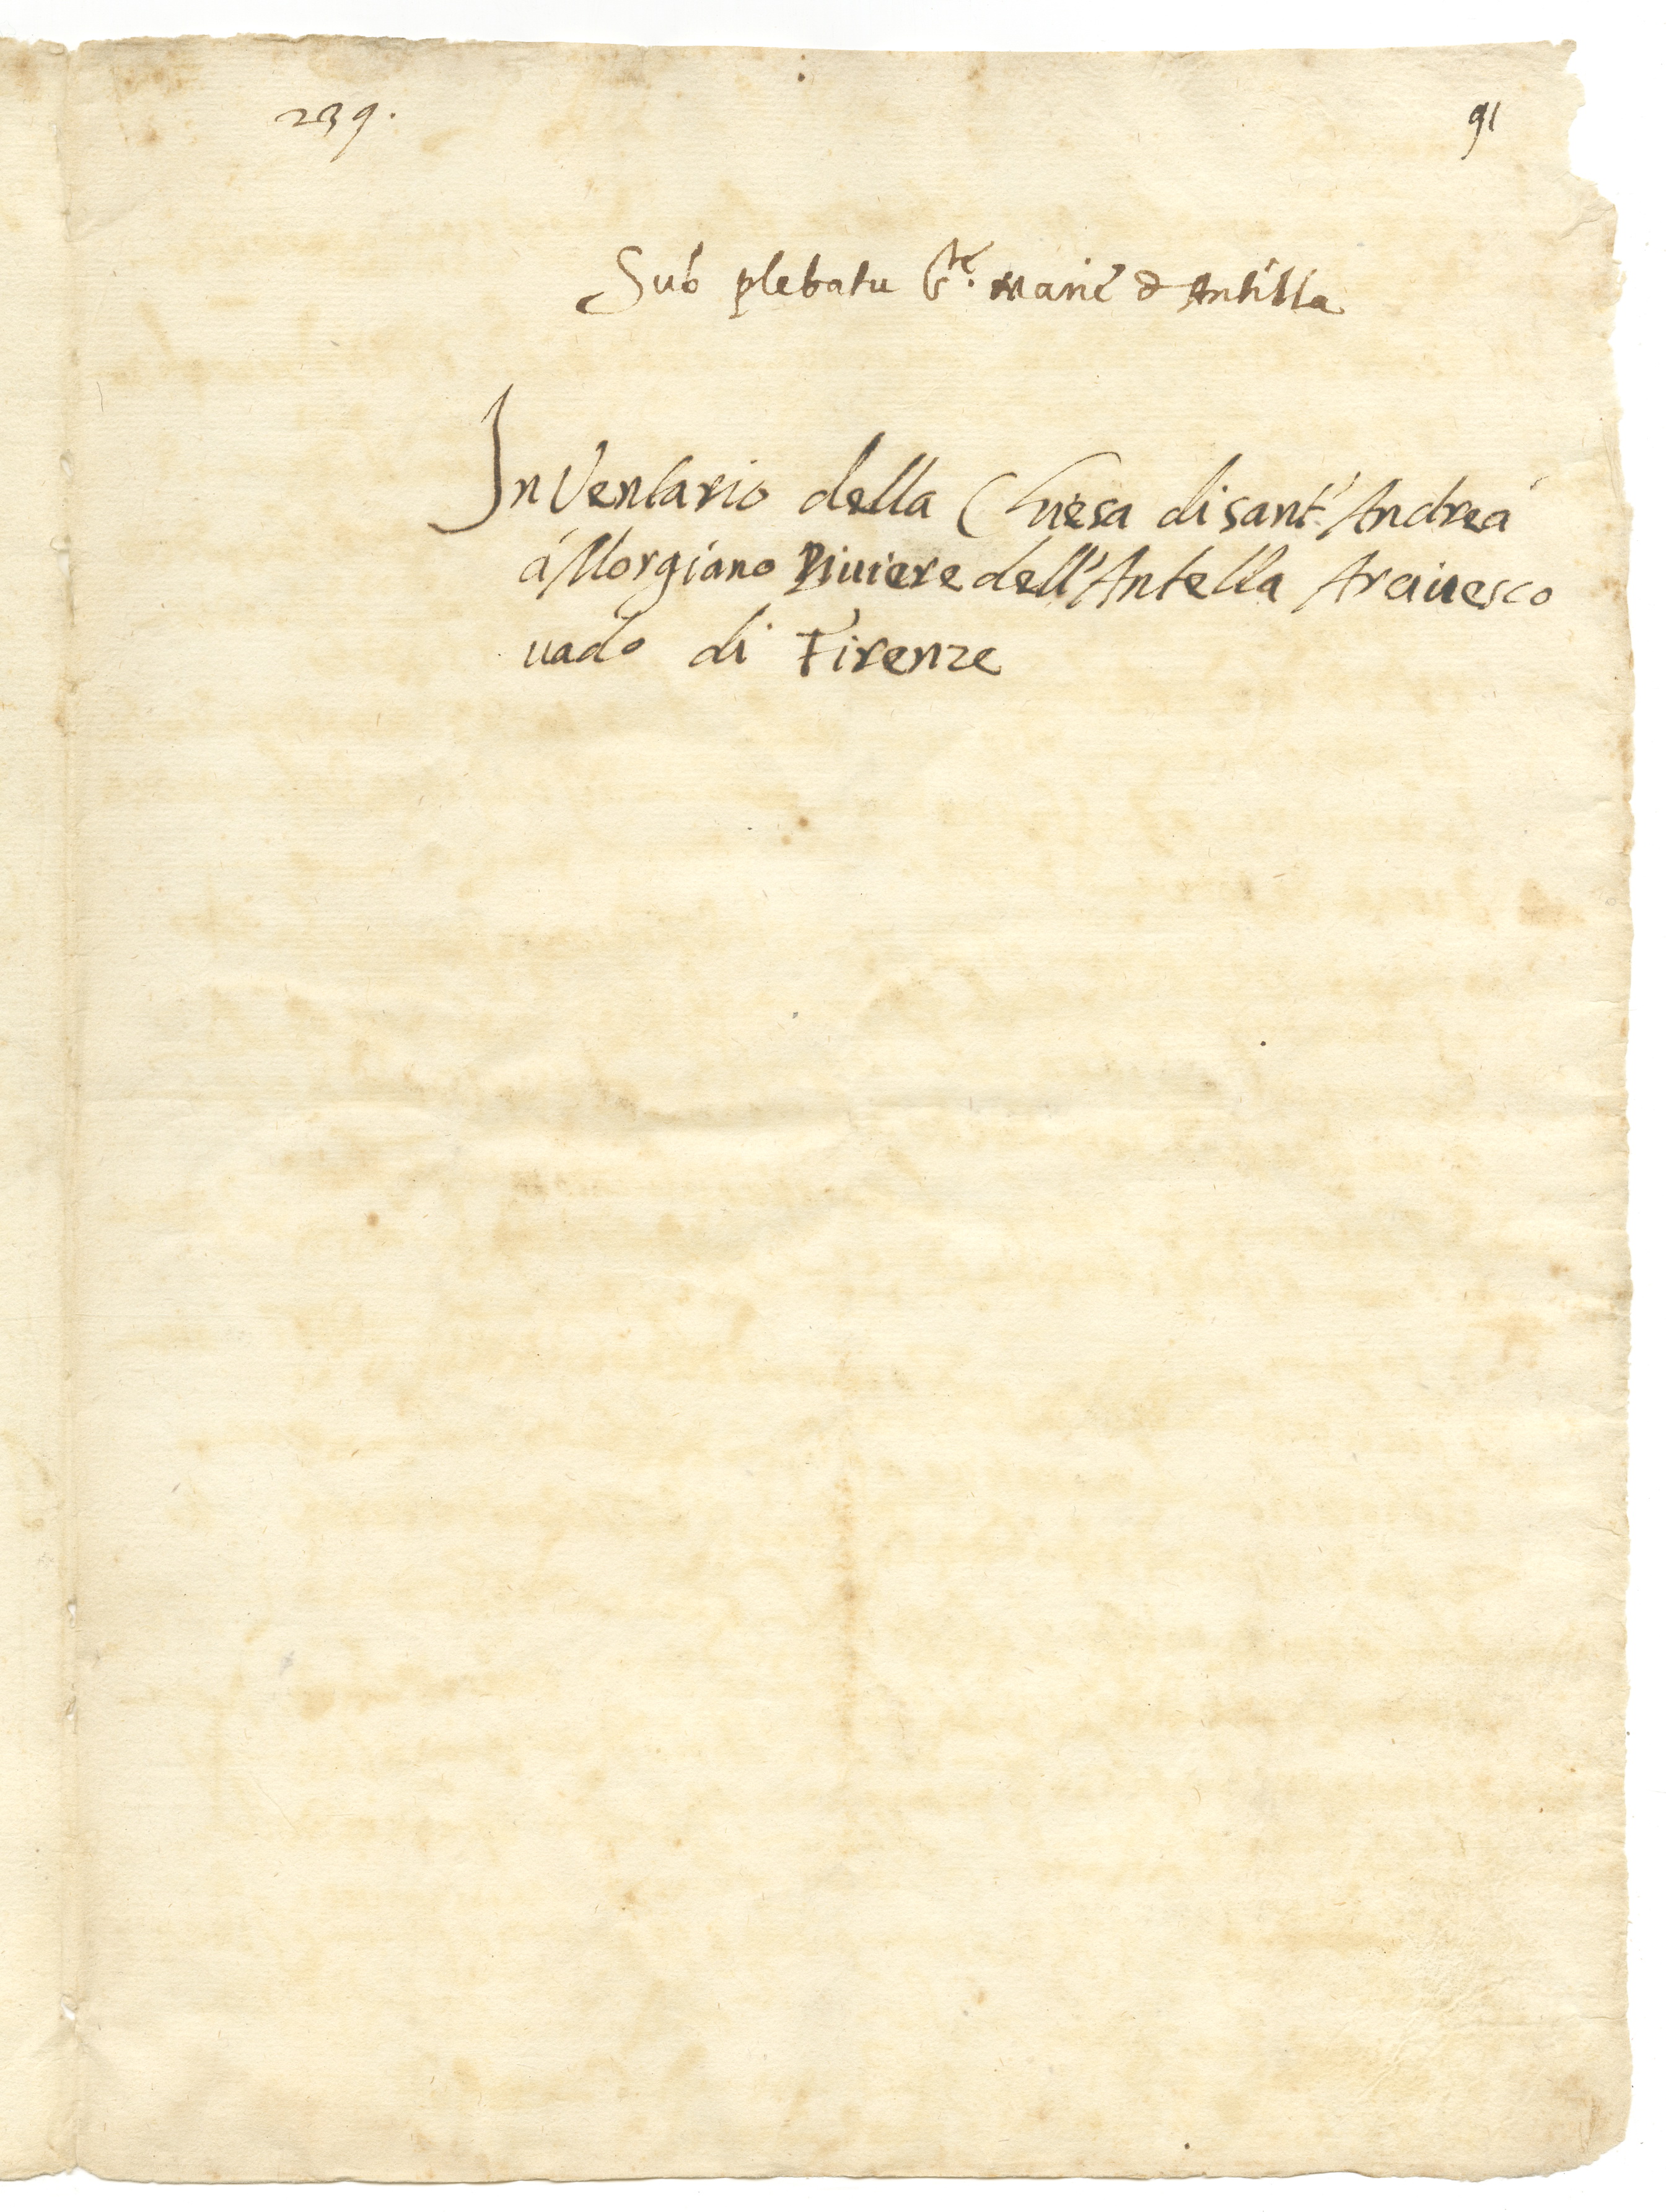 239.
91
Sub plebatu S.te Marie d Antilla
InVentario della Chiesa di sant' Andrea
á Morgiano Piuiere dell'Antella Arciuesco
uado di Firenze